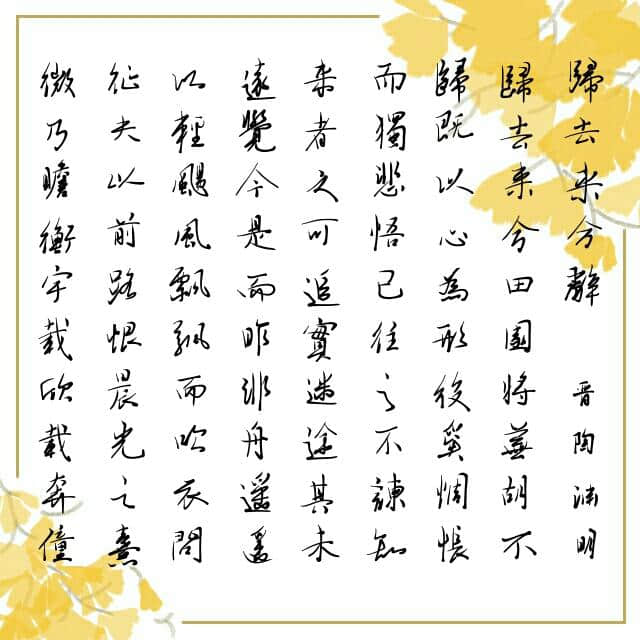 歸去来兮辭 晋陶渊明
歸去来兮田園將蕪胡不
歸既以心為形役奚惆悵
而獨悲悟已往之不諫知
来者之可追實迷途其未
遠覺今是而昨非舟遥遥
以輕颺風飄飄而吹衣問
征夫以前路恨晨光之熹
微乃瞻衡宇載欣載奔僮